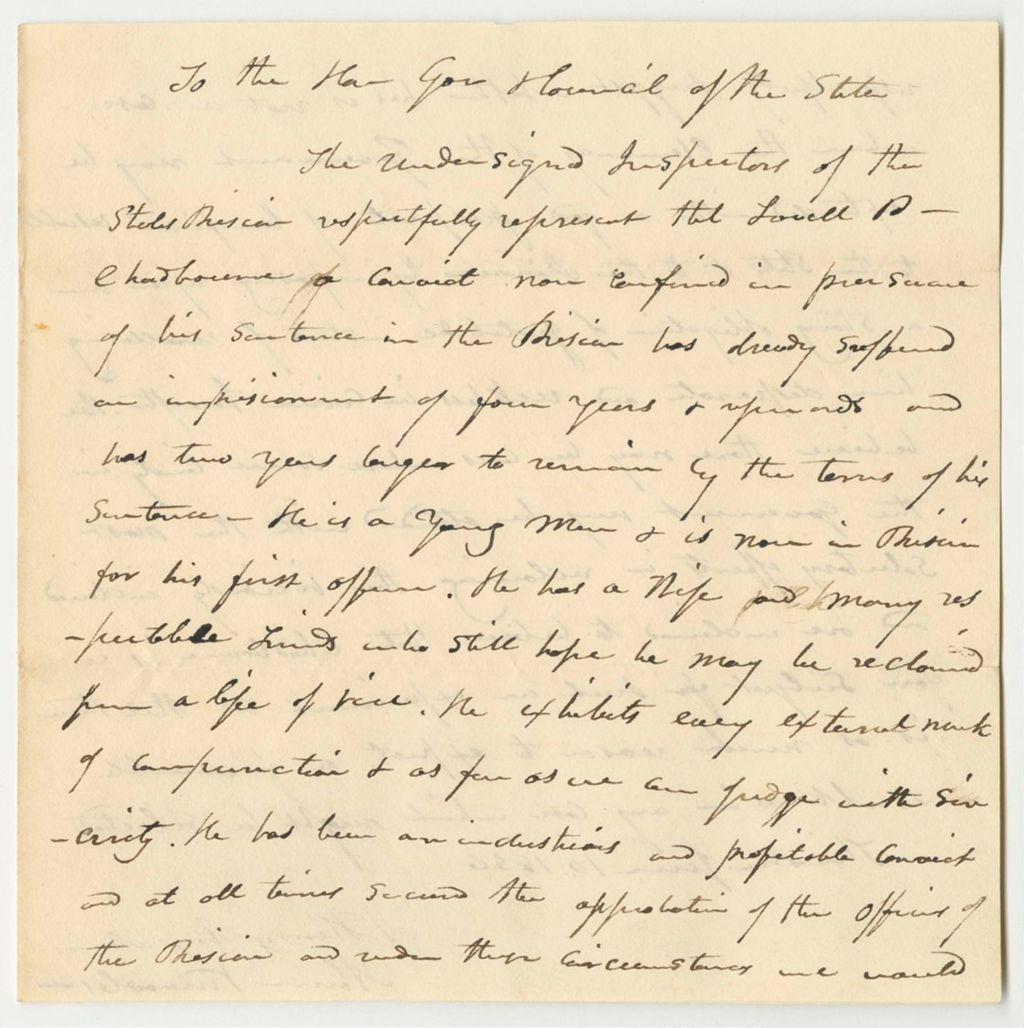 To the Hon Gov & Council of the State
The undersigned Inspectors of the
States Prison respectfully represent that Lovell P-
Chadbourne a Convict now confined in pursuance
of his Sentence in the Prison has already suffered
an imprisonment of four years & upwards and
has two years longer to remain by the terms of his
Sentence - He is a Young Man & is now in Prison
for his first offence. He has a Wife and many res
-pectable friends who still hope he may be reclaimed
from a life of vice. He exhibits every external mark
of compunction & as far as we can judge with Sin
-cerity. He has been an industrious and profitable Convict
and at all times secured the approbation of the officers of
the Prison and under these Circumstances we would